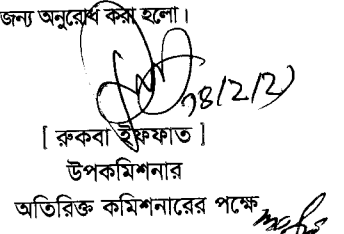 জন্য অনুরোধ করা হলো।
[ রুকবা ইফফাত ]
উপকমিশনার
অতিরিক্ত কমিশনারের পক্ষে